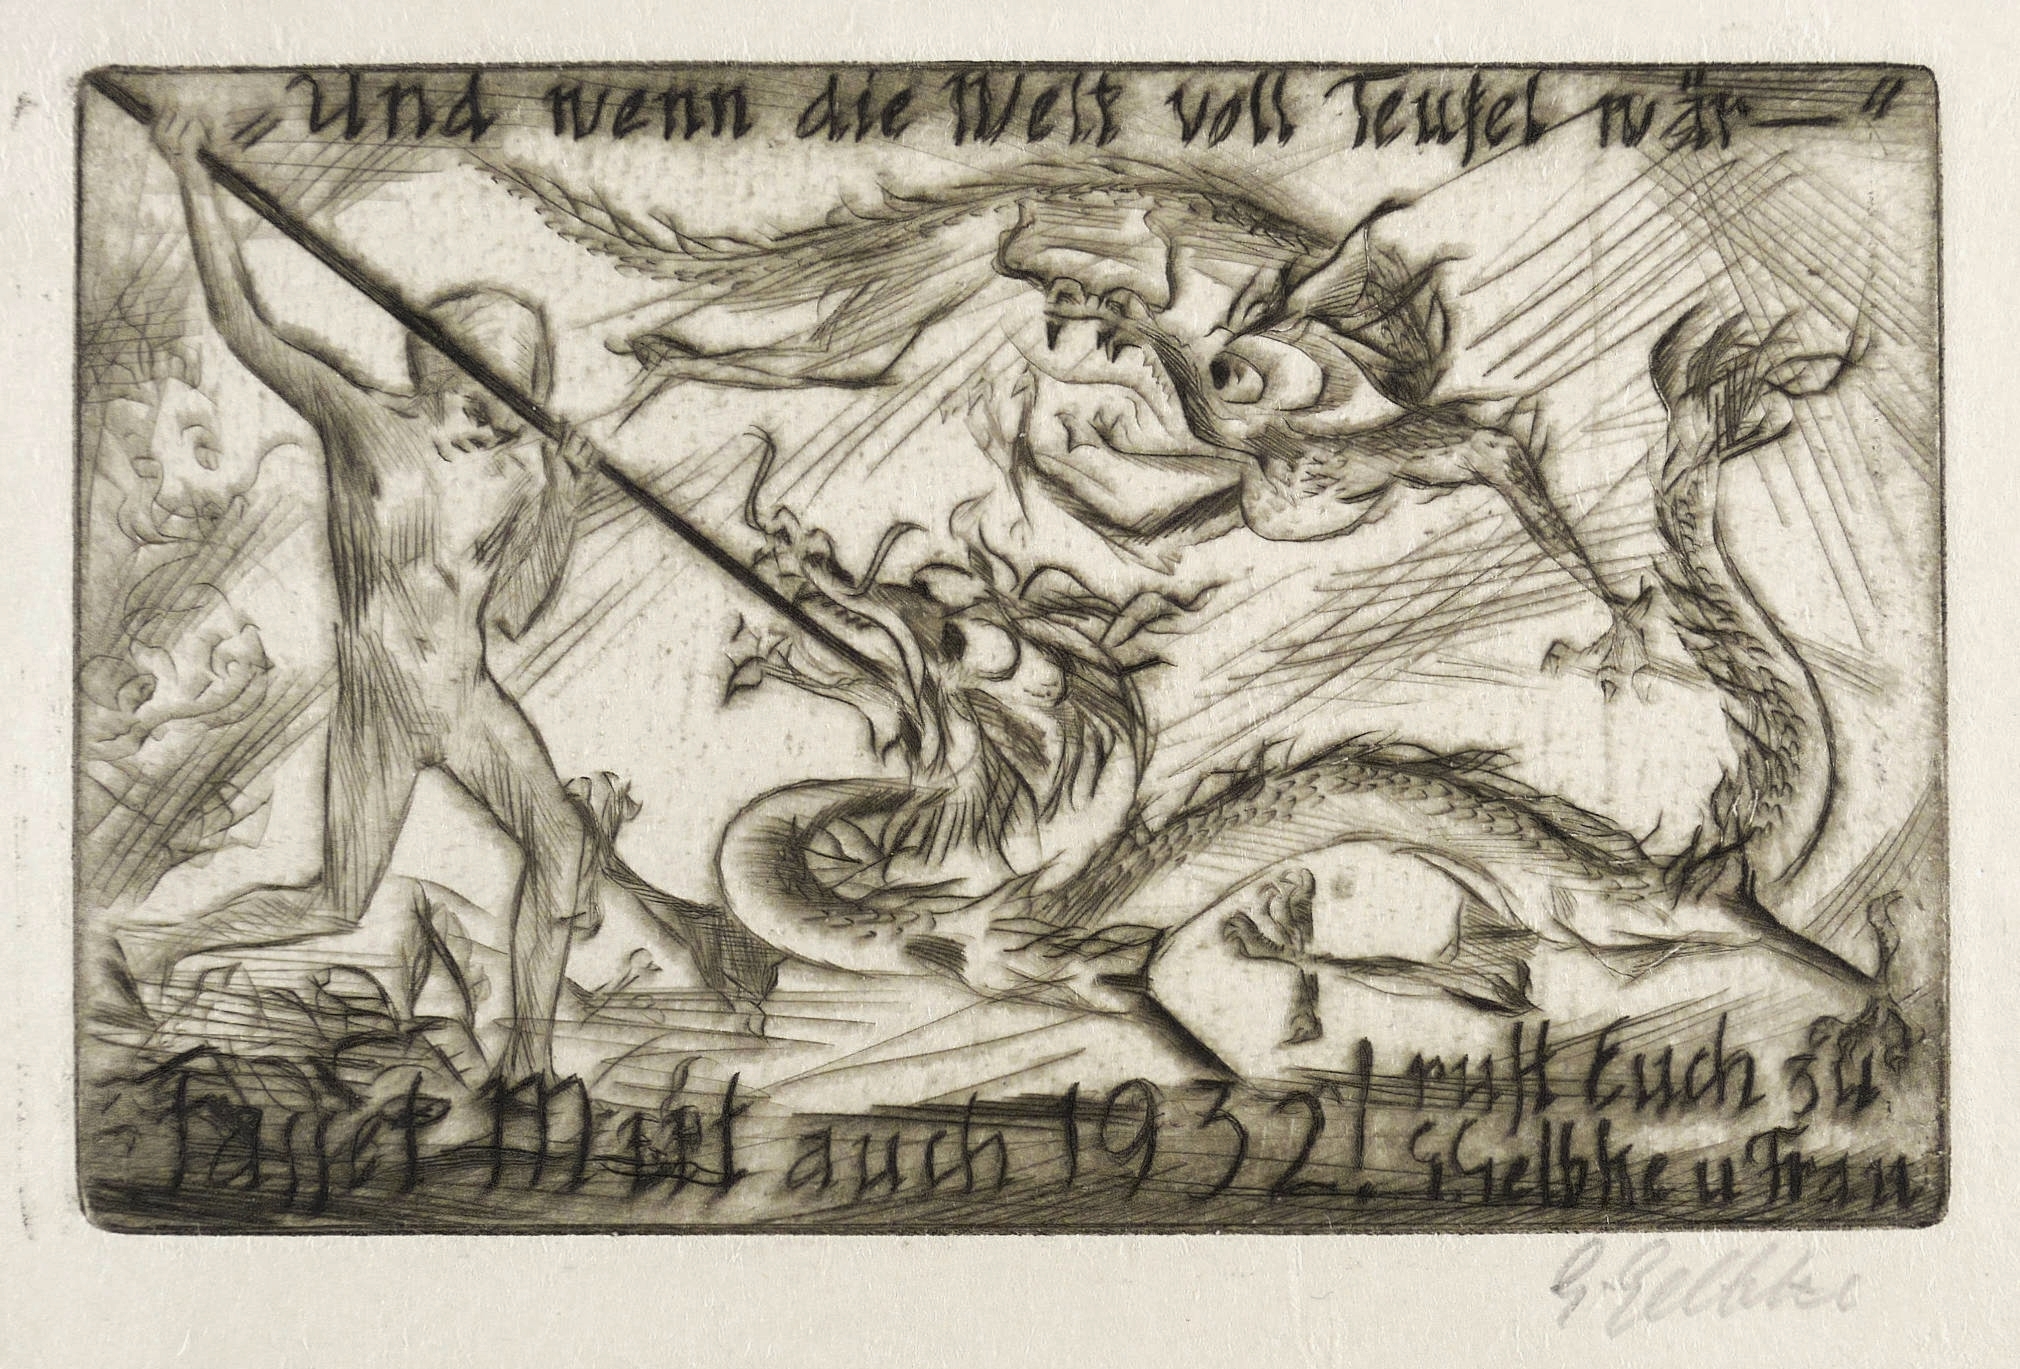 „Und wenn die Welt voll Teufel wär—"
Fasset Mut auch 1932!
ruft Euch zu
G. Gelbke u Frau
G. Gelbke